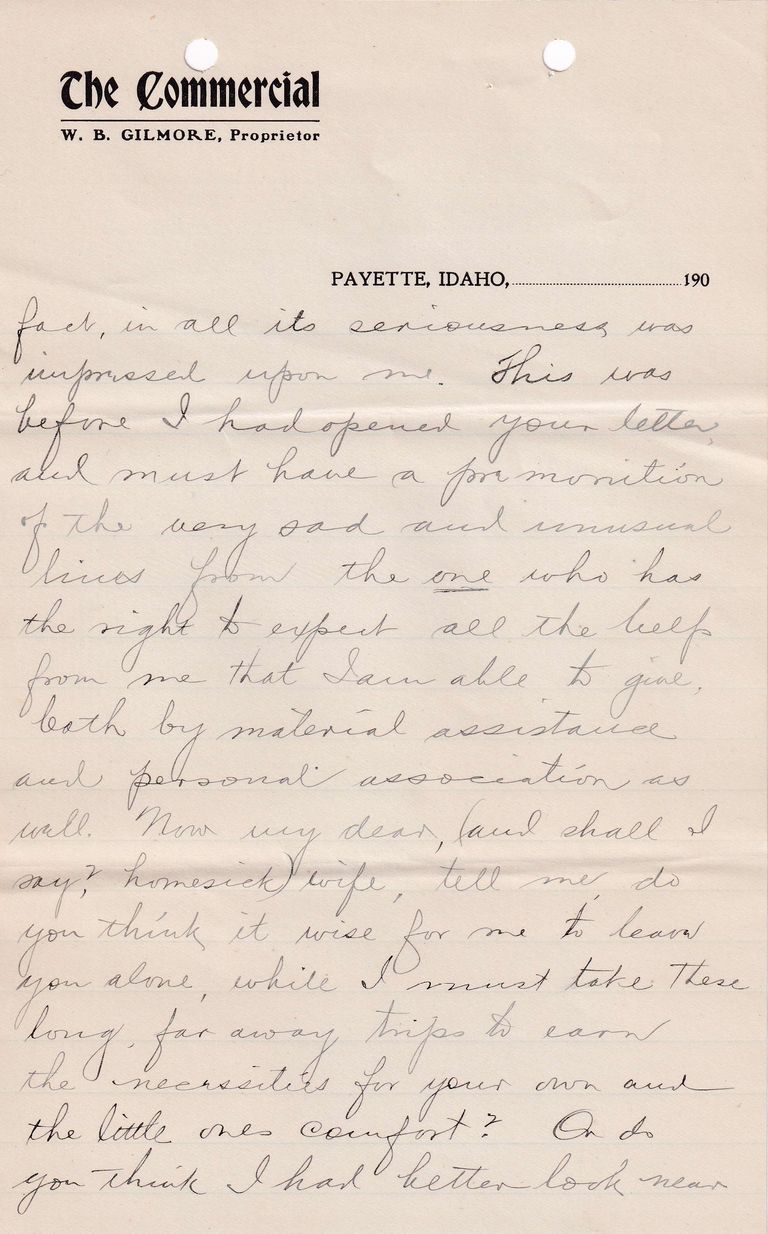 The Commercial
W. B. GILMORE, Proprietor
PAYETTE, IDAHO, ........................................ 190
fact, in all its seriousness was
impressed upon me. This was
before I had opened your letter,
and must have a premonition
of the very sad and unusual
lines from the one who has
the right to expect all the help
from me that I am able to give,
both by material assistance
and personal association as
well. Now my dear, (and shall I
say?, homesick) wife, tell me, do
you think it wise for me to leave
you alone, while I must take these
long, far away trips to earn
the necessities for your own and
the little ones comfort? Or do
you think I had better look near